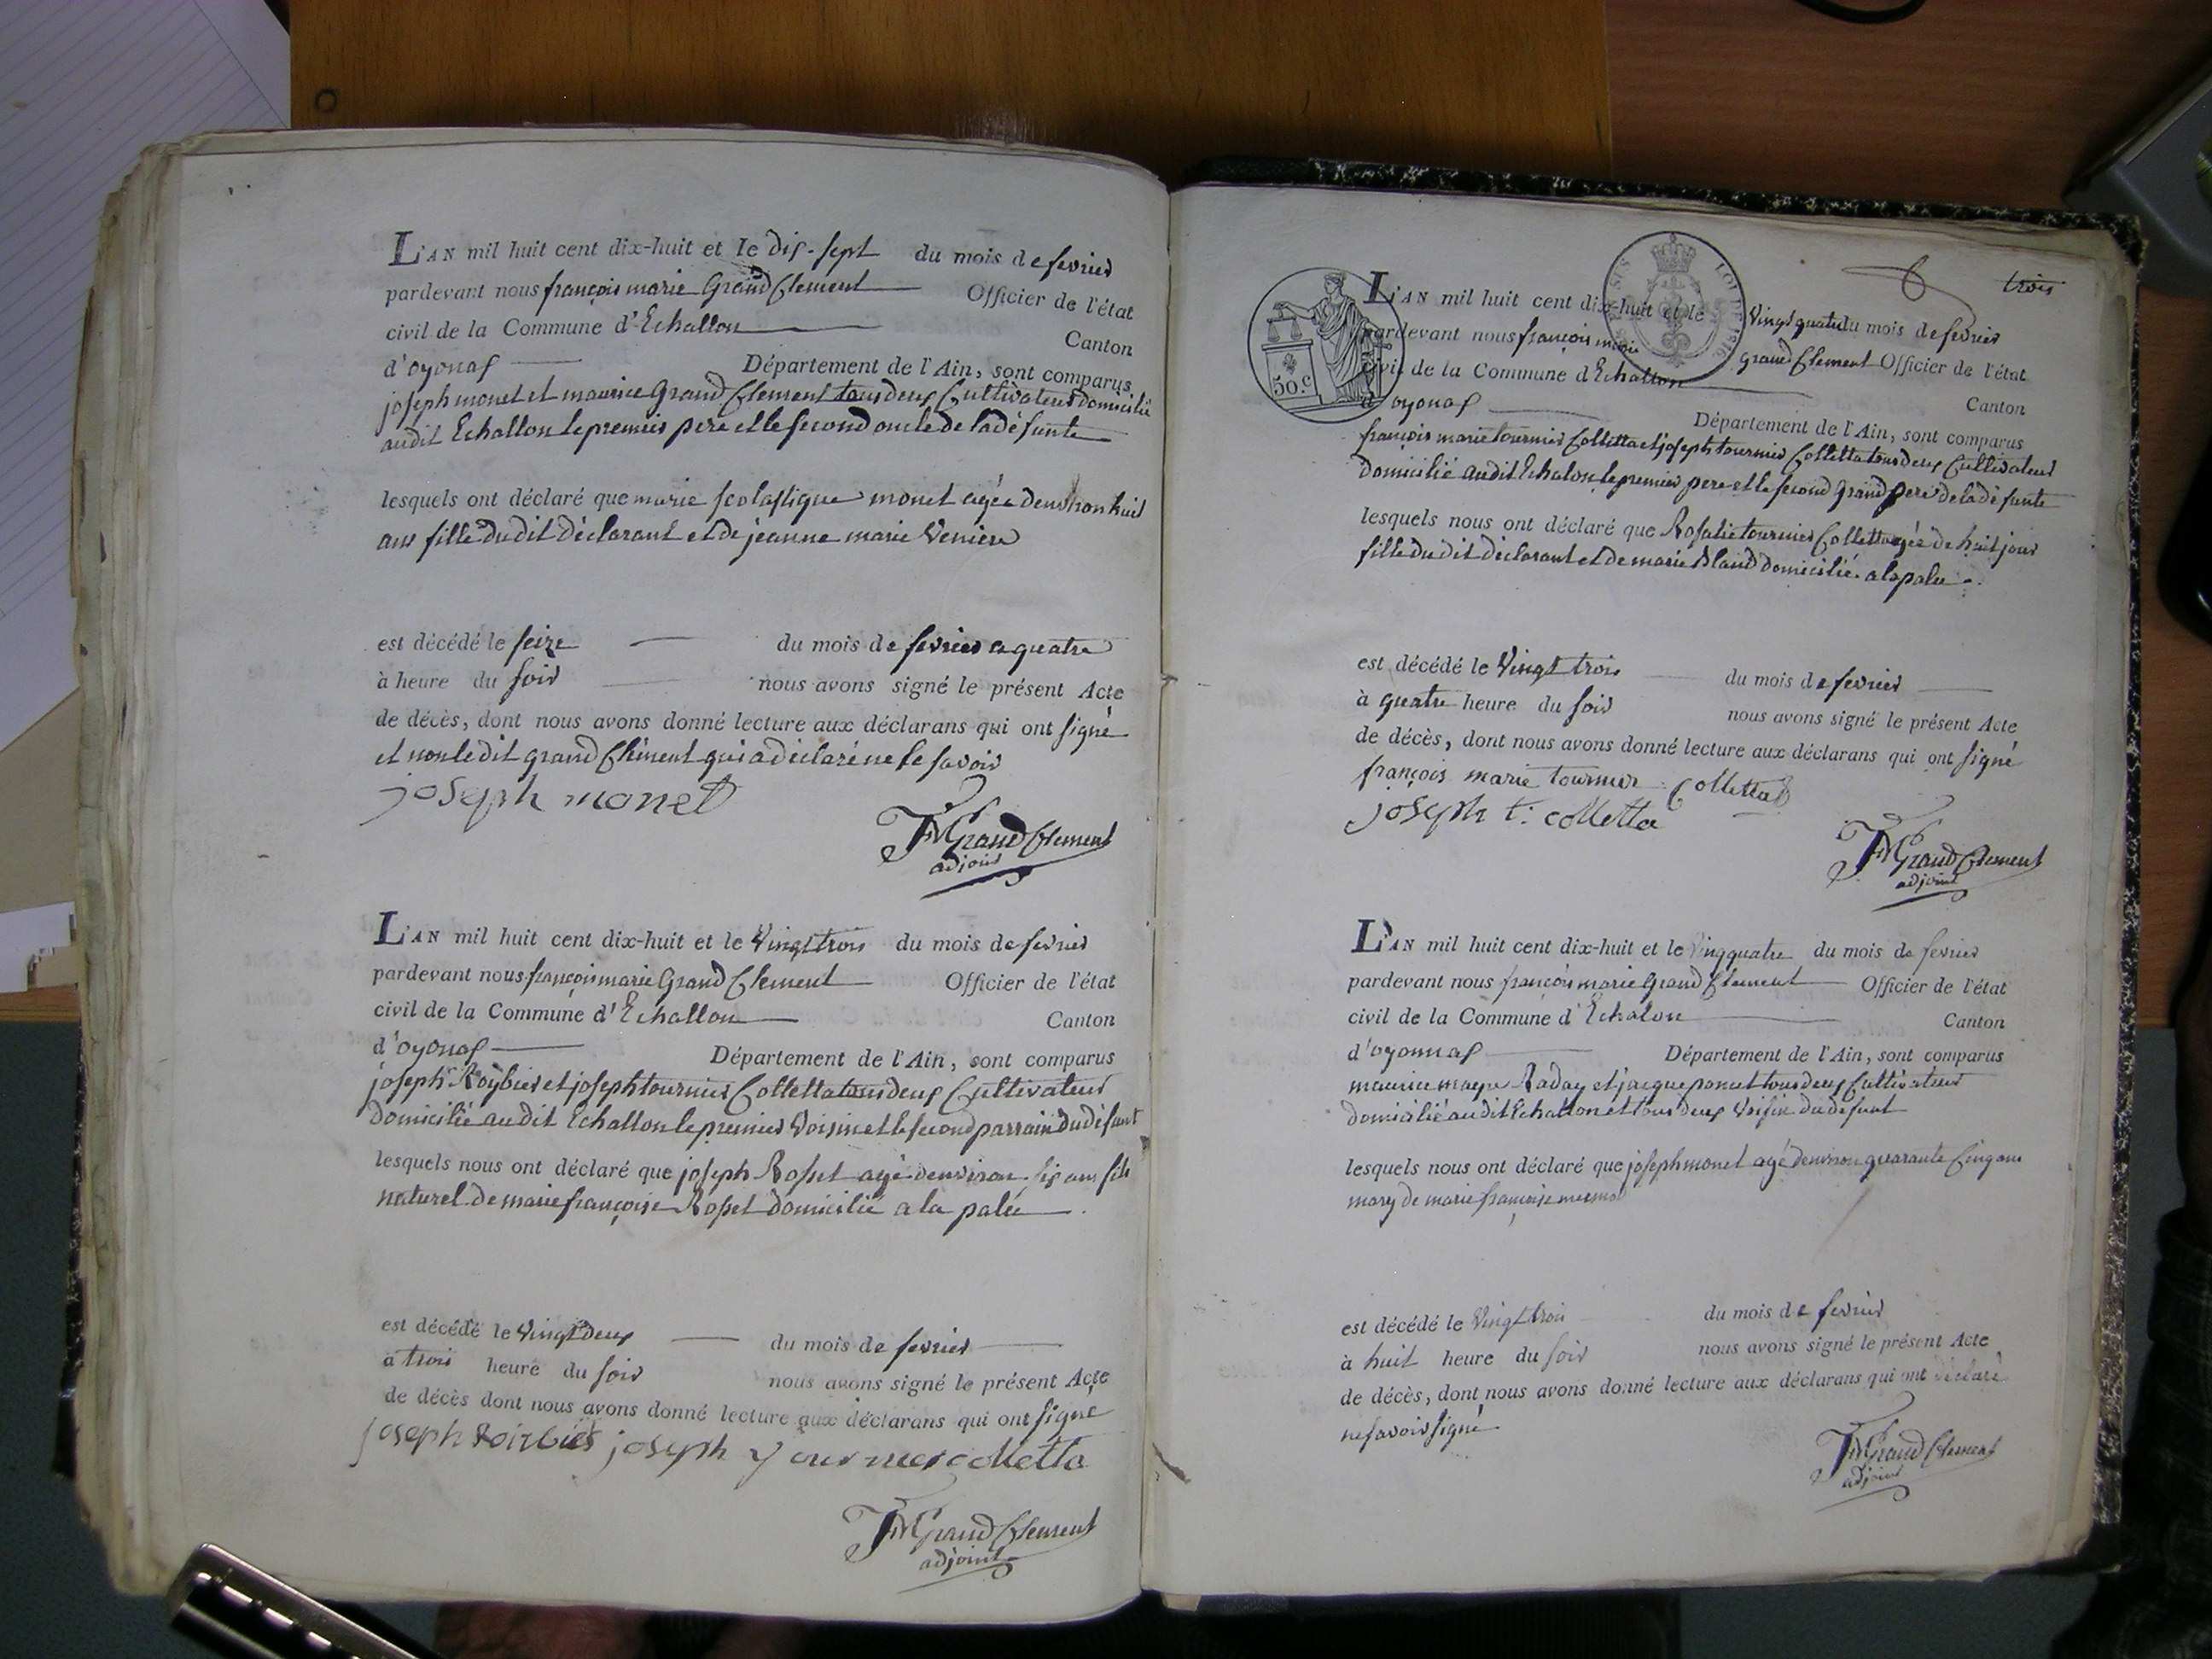 L'AN mil huit cent dix-huit et le dix-sept du mois de fevrier
pardevant nous françois marie Grand Clement Officier de l'état
civil de la Commune d'Echallon Canton
d'oyonax Département de l'Ain, sont comparus
joseph monet et maurice Grand Clement tous deux Cultivateurs domicilié
audit Echallon le premier pere et le second oncle de la défunte
lesquels ont déclaré que marie scolastique monet agée denviron huit
ans fille du dit déclarant et de jeanne marie
est décédé le seize du mois de fevrier a quatre
à heure du soir nous avons signé le présent Acte
de décès, dont nous avons donné lecture aux déclarans qui ont signé
et non le dit grand Clément qui a déclaré ne le savoir
joseph monet
FM Grand Clement
adjoint
L'AN mil huit cent dix-huit et le vingt trois du mois de fevrier
pardevant nous françois marie Grand Clement Officier de l'état
civil de la Commune d'Echallon Canton
d'oyonax Département de l'Ain, sont comparus
joseph Roybier et joseph tournier Colletta tous deux Cultivateur
domicilié au dit Echallon le premier Voisin et le second parrain du défunt
lesquels nous ont déclaré que joseph Rosset agé denviron six ans fils
naturel de marie françoise Rosset domicilié a la palud
est décédé le vingt deux du mois de fevrier
à trois heure du soir nous avons signé le présent Acte
de décès dont nous avons donné lecture aux déclarans qui ont signe
joseph Roirbier joseph tournier colletta
FM Grand Clement
adjoint
6 trois
50.c
L'AN mil huit cent dix-huit et le vingt quatre du mois de fevrier
pardevant nous françois marie grand Clement Officier de l'état
civil de la Commune d'Echallon Canton
d'oyonax Département de l'Ain, sont comparus
françois marie tournier Colletta et joseph tournier Colletta tous deux Cultivateur
domicilié audit Echalon le premier pere et le second Grand pere de la défunte
lesquels nous ont déclaré que Rosalie tournier Colletta agée de huit jour
fille du dit déclarant et de marie Bland domicilié a la palu
est décédé le vingt trois du mois de fevrier
à quatre heure du soir nous avons signé le présent Acte
de décès, dont nous avons donné lecture aux déclarans qui ont signé
françois marie tournier Colletta
joseph t. colletta
FM Grand Clement
adjoint
L'AN mil huit cent dix-huit et le vingquatre du mois de fevrier
pardevant nous françois marie Grand Clement Officier de l'état
civil de la Commune d'Echalon Canton
d'oyonnax Département de l'Ain, sont comparus
maurice Raday et jacque poncet tous deux Cultivateur
domicilié au dit Echallon et tous deux Voisin du defunt
lesquels nous ont déclaré que joseph monet agé denviron quarante Cinq ans
mary de marie françoise
est décédé le vingt trois du mois de fevrier
à huit heure du soir nous avons signé le présent Acte
de décès, dont nous avons donné lecture aux déclarans qui ont déclaré
ne savoir signé
FM Grand Clement
adjoint